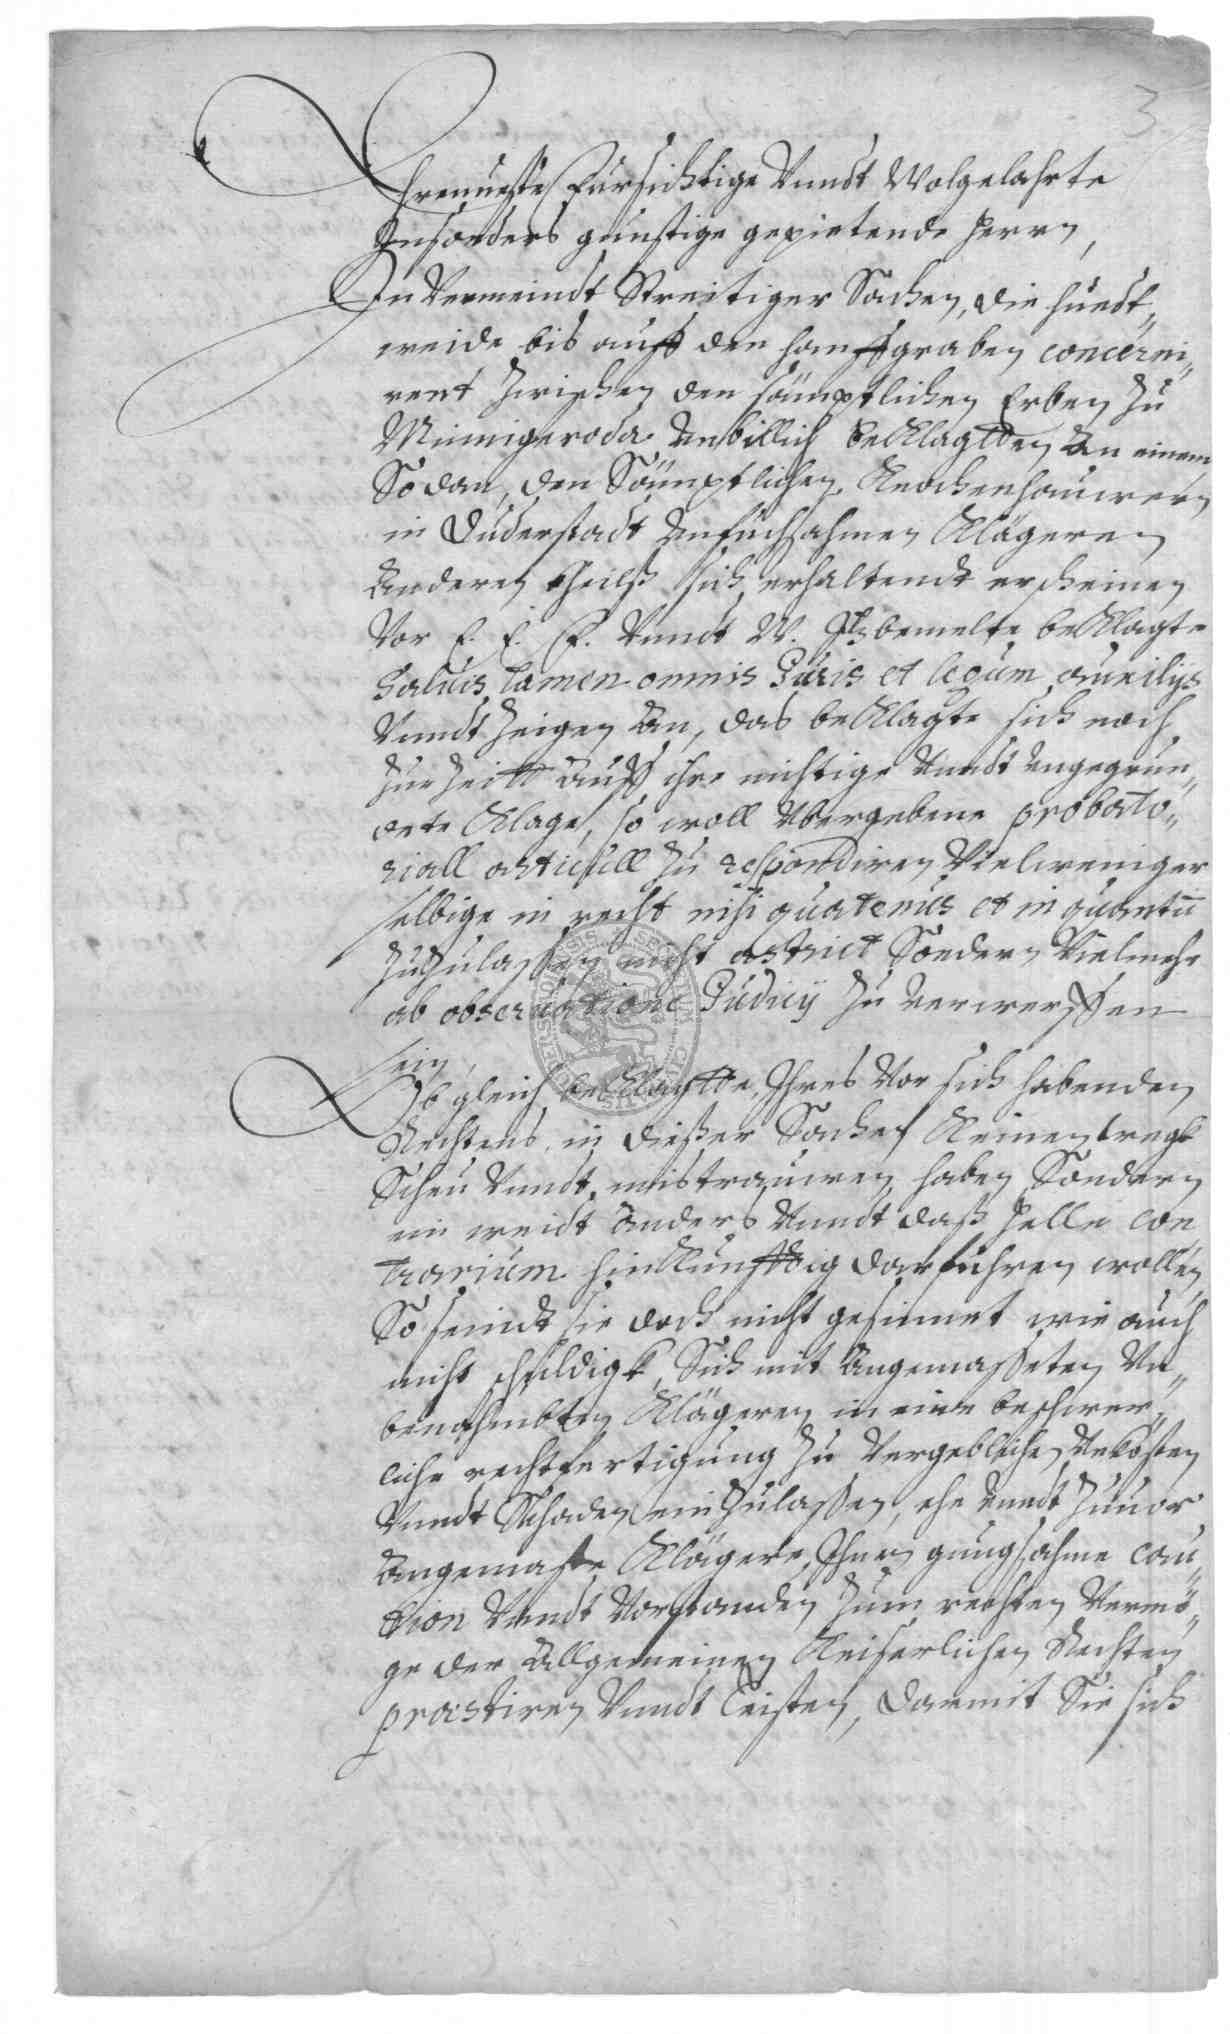 3
Ehrnueste Fursichtige Vnndt Wolgelahrte
Insonders gunstige gepietende Herrn,
In Vermeindt Streitiger Sachen, die huedt„
weide bis auff den hanffgraben concerni„
rent Zwischen den sämptlichen Erben Zu
Minnigeroda Vnbillich beklagtten An einem
So dan, den Sämptlichen Knochenhauwern
in Duderstadt Vnfuchsahmen Klägeren
Anderen theilß sich erhaltendt erscheinen
Vor E. E. F. Vnndt W. Itzbemelte beklagte
Saluis tamen omnis Juris et legum auxilijs
Vnndt Zeigen An, das beklagte sich noch
Zur Zeitt Auff ihre nichtige Vnndt vngegrun„
dete Klage, so woll Vbergebene probato„
riall articull Zu respondiren Vielweniger
selbige in recht nisi quatenus et in quantu
Zuzulassen nicht astrict Sondern Vielmehr
ab obseruatione Judicij Zu verwerffen
sein
Ob gleich beklagtte, Ihres Vor sich habenden
Rechtens, in dießer Sachen Keinen
Scheu Vnndt mistrauwen haben Sondern
ein weidt Anders Vnndt daß helle con
trarium hinkunfftig darfuhren wollen
So seindt sie doch nicht gesinnet wie auch
nicht schuldigk, Sich mit Angemasseten Vn„
benahmbten Klägeren in eine beschwer„
liche rechtfertigung Zu Vergeblichen Vnkosten
Vnndt Schaden einZulassen, ehe Vnndt Zuuor
Angemaste Klägere, Ihnen gnugsahme cau„
tion Vnndt Vorstanden Zum rechten Vermö„
ge der Allgemeinen Keiserlichen Rechten
praestiren Vnndt leisten, Darmit Sie sich